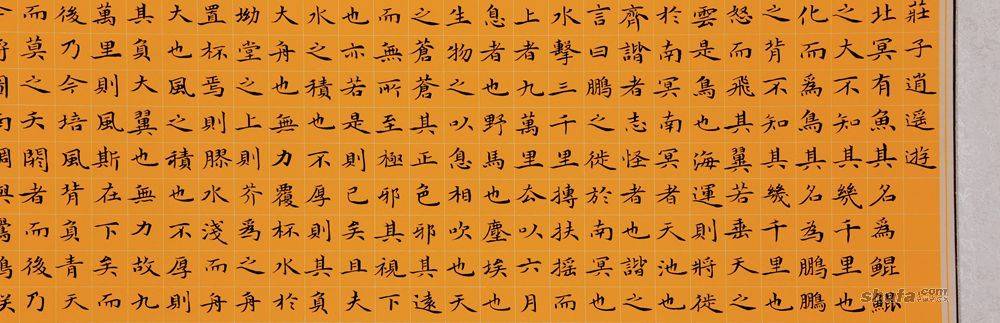 莊子逍遥遊
北冥有魚其名為鯤鯤
之大不知其幾千里也
化而為鳥其名為鵬鵬
之背不知其幾千里也
怒而飛其翼若垂天之
雲是鳥也海運則將徙
於南冥南冥者天池也
齊諧者志怪者也諧之
言曰鵬之徙於南冥也
水擊三千里摶扶摇而
上者九萬里去以六月
息者也野馬也塵埃也
生物之以息相吹也天
之蒼蒼其正色邪其遠
而無所至極邪其視下
也亦若是則已矣且夫
水之積也不厚則其負
大舟也無力覆杯水於
坳堂之上則芥為之舟
置杯焉則膠水淺而舟
大也風之積也不厚則
其負大翼也無力故九
萬里則風斯在下矣而
後乃今培風背負青天
而莫之夭閼者而後乃
shufa.com